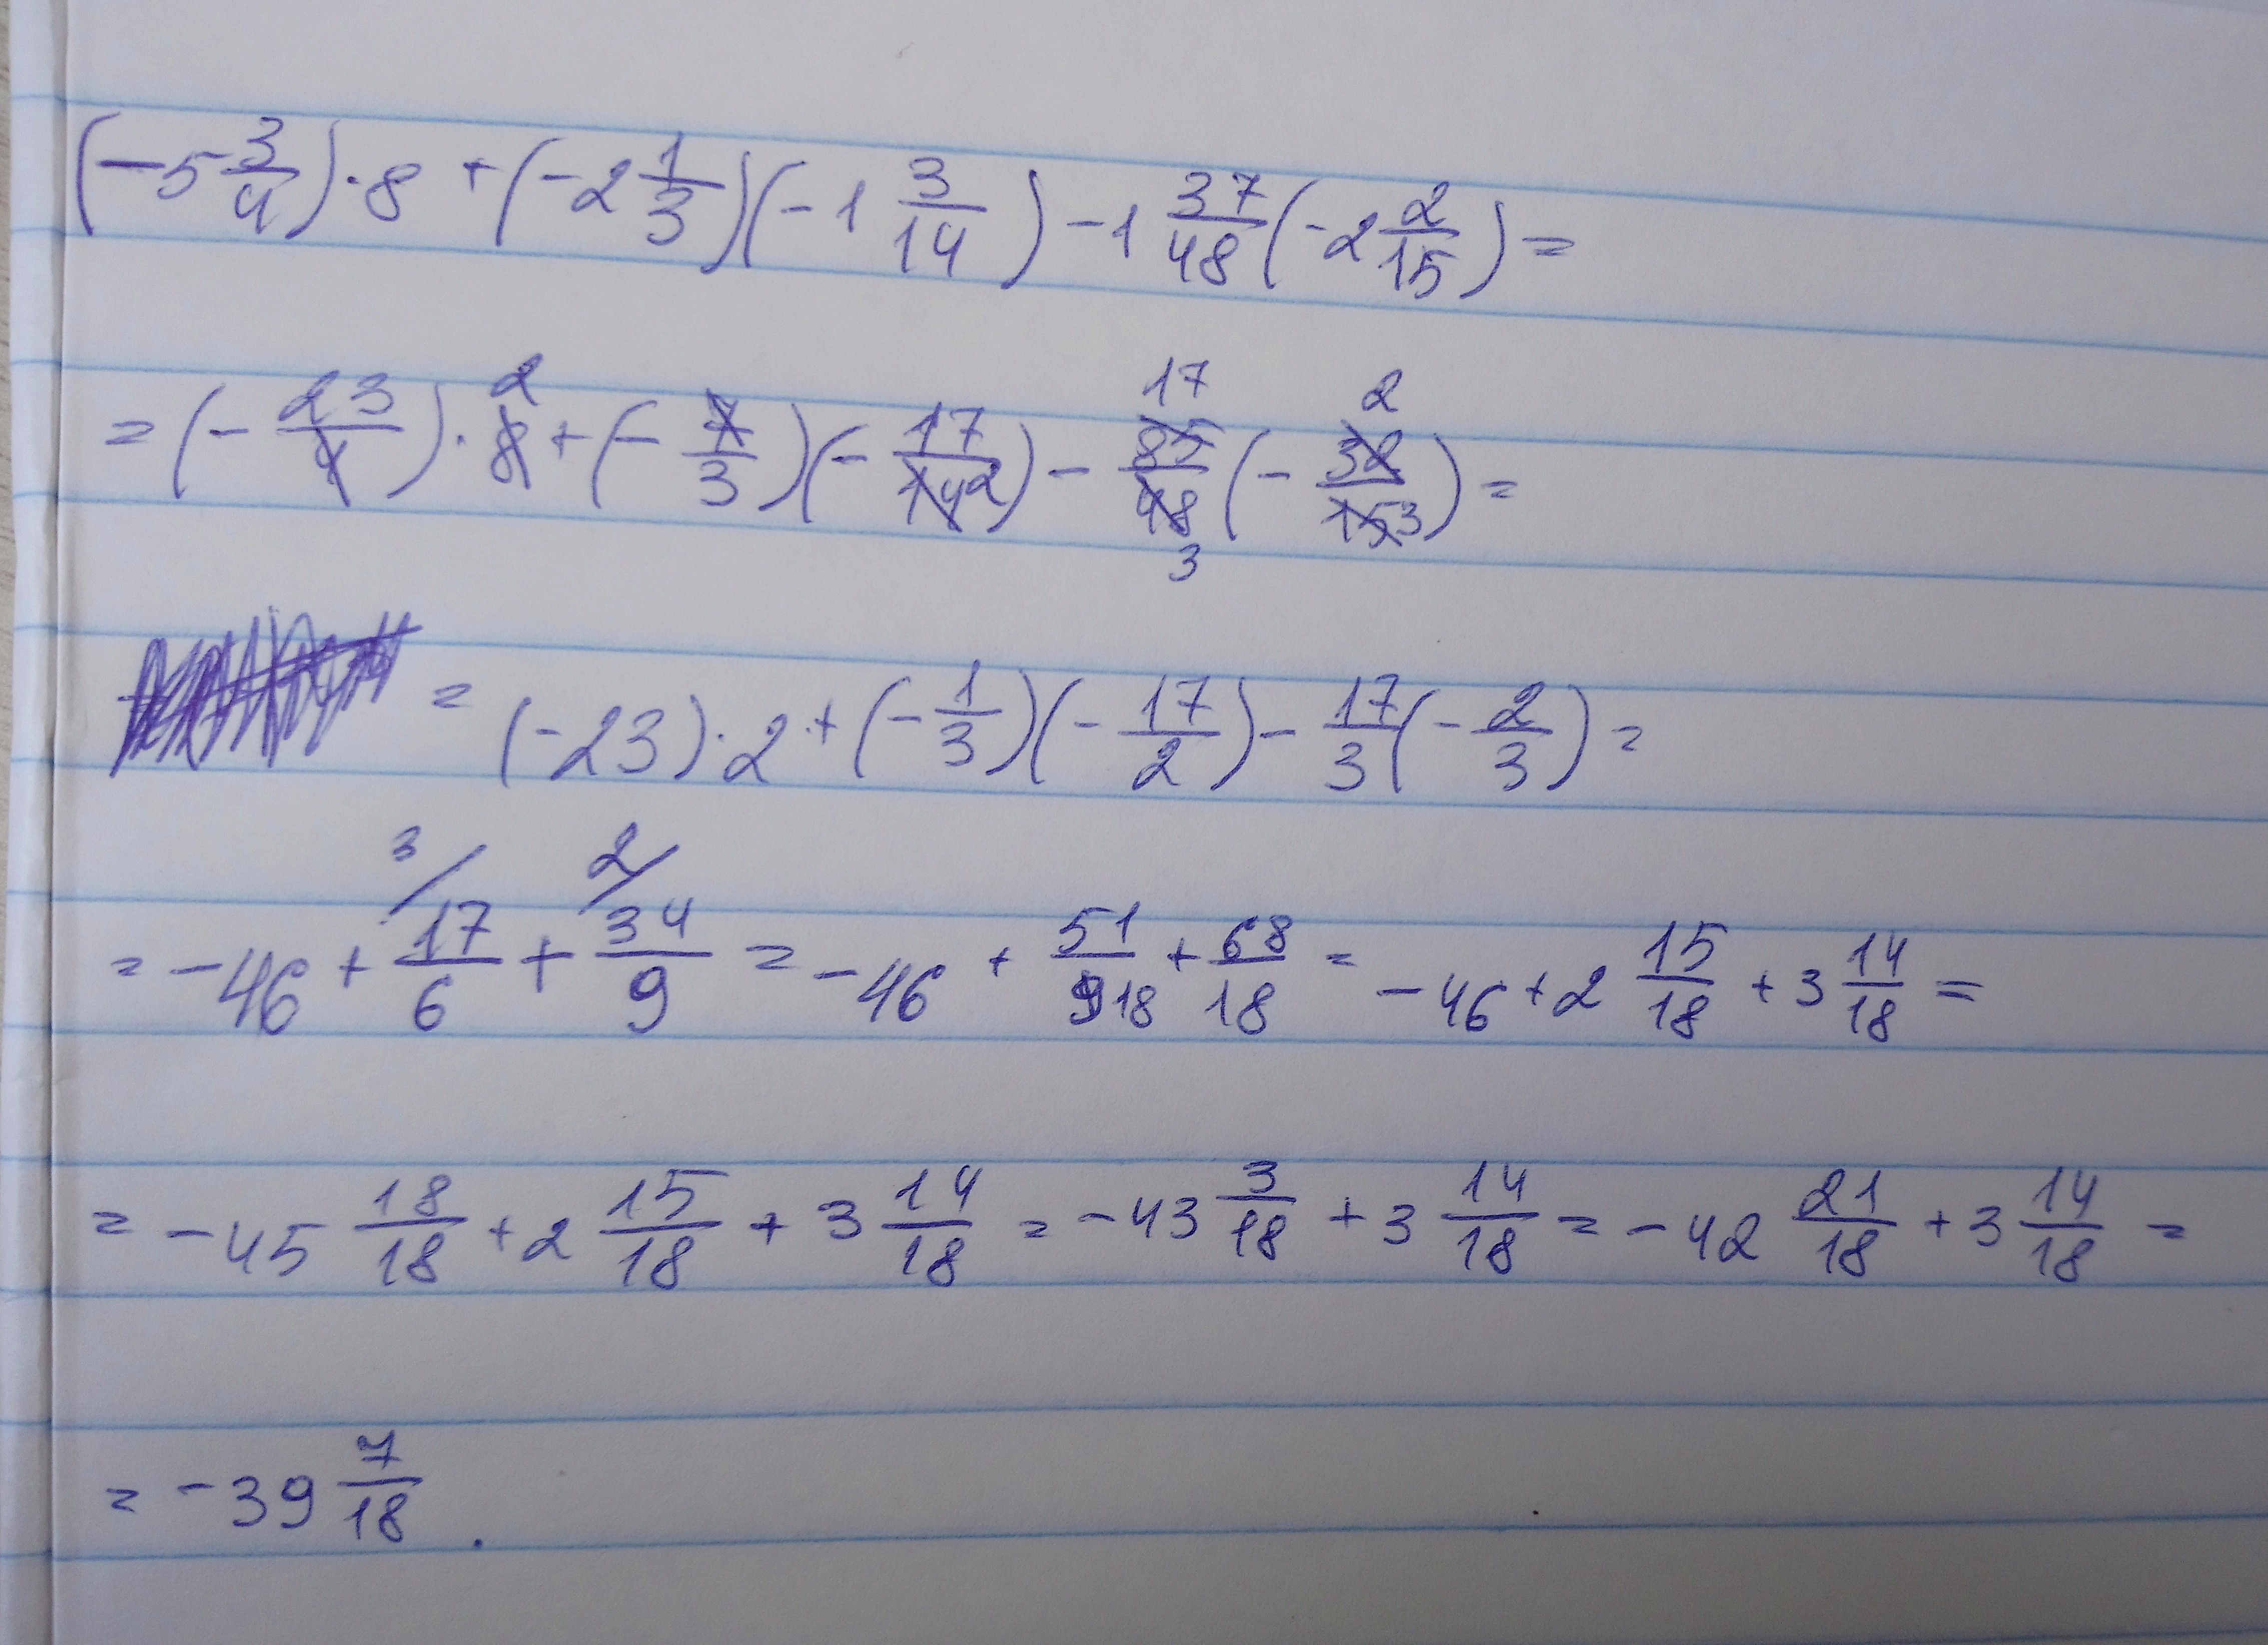 (-5 3/4)·8 + (-2 1/3)(-1 3/14) - 1 37/48 (-2 2/15) =
= (- 23/4)·8 2 + (- 7/3)(- 17/14 2) - 17 85/48 3 (- 2 32/15 3) =
= (-23)·2 + (- 1/3)(- 17/2) - 17/3 (- 2/3) =
= -46 + 3/ 17/6 + 2/ 34/9 = -46 + 51/18 + 68/18 = -46 + 2 15/18 + 3 14/18 =
= -45 18/18 + 2 15/18 + 3 14/18 = -43 3/18 + 3 14/18 = -42 21/18 + 3 14/18 =
= -39 7/18 .